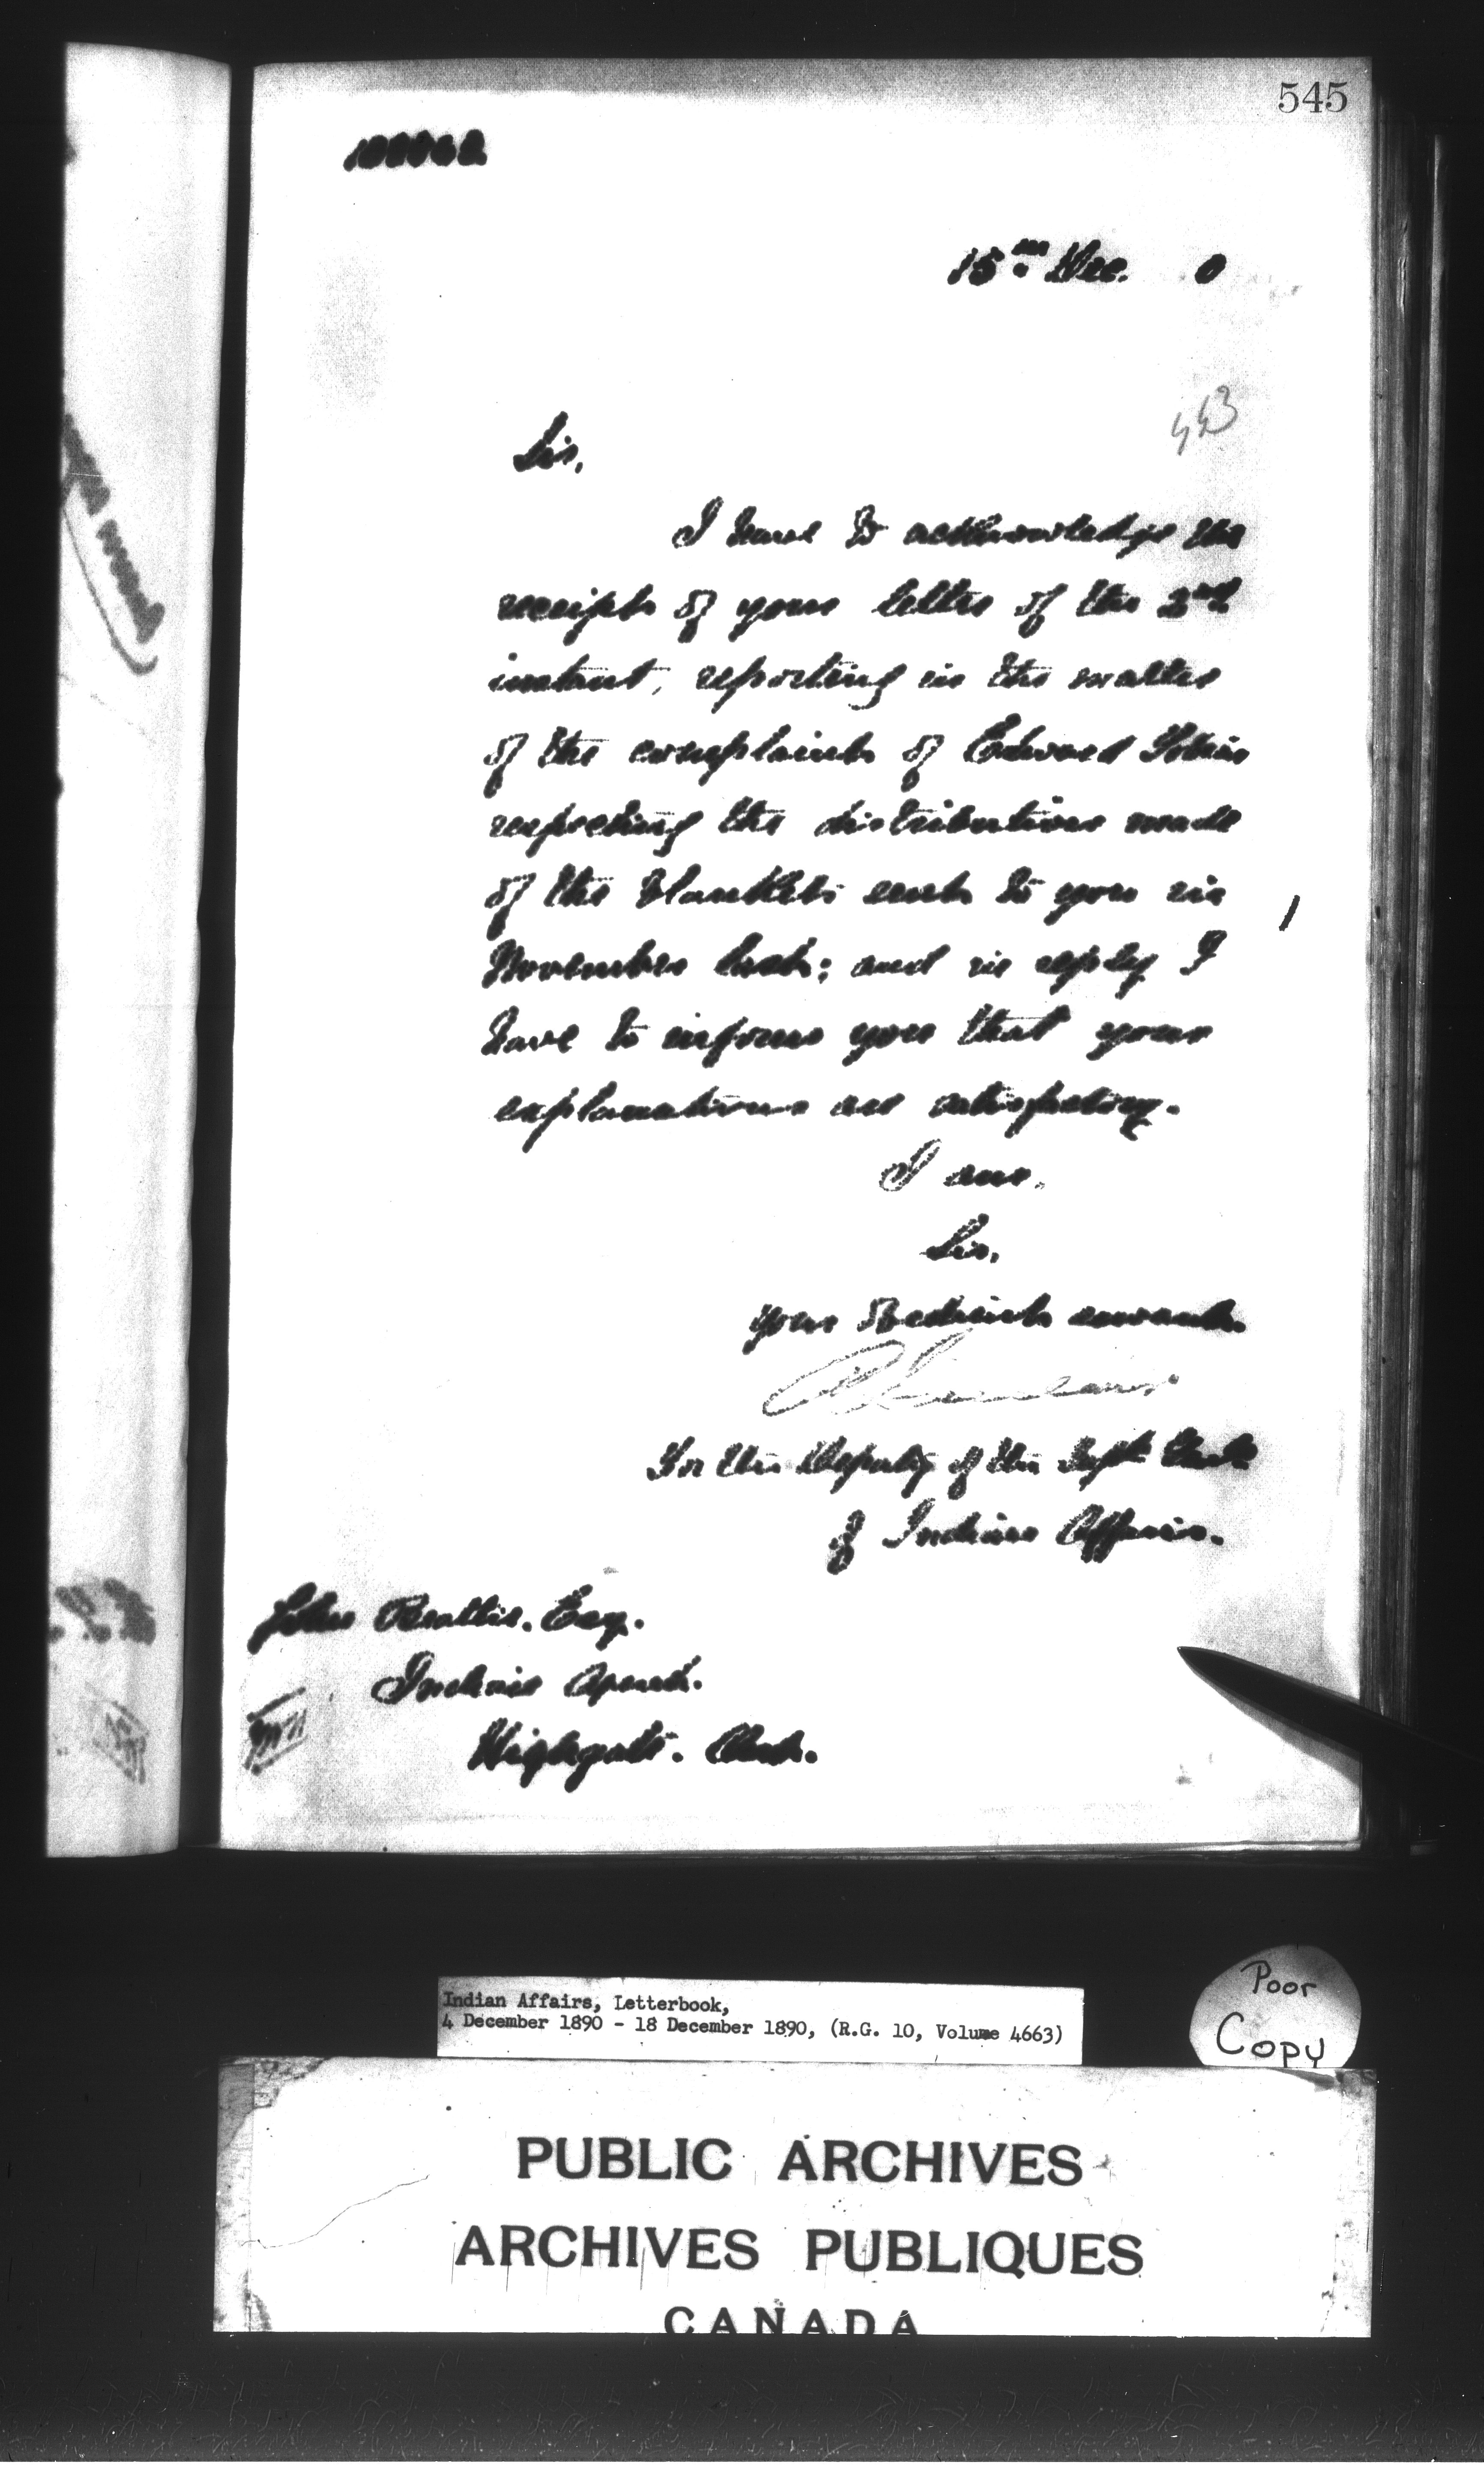 545
15th Dec. 0
443
Sir,
I have to acknowledge the
receipt of your letter of the 2nd
instant, reporting in the matter
of the complaint of Edward
respecting the distribution made
of the blankets sent to you in
November last; and in reply I
have to inform you that your
explanations are satisfactory.
I am,
Sir,
Your obedient servant
For the Deputy of the Supt. Genl.
of Indian Affairs.
John Beattie, Esq.
Indian Agent.
Highgate. Ont.
Indian Affairs, Letterbook,
4 December 1890 - 18 December 1890, (R.G. 10, Volume 4663)
Poor
Copy
PUBLIC ARCHIVES
ARCHIVES PUBLIQUES
CANADA